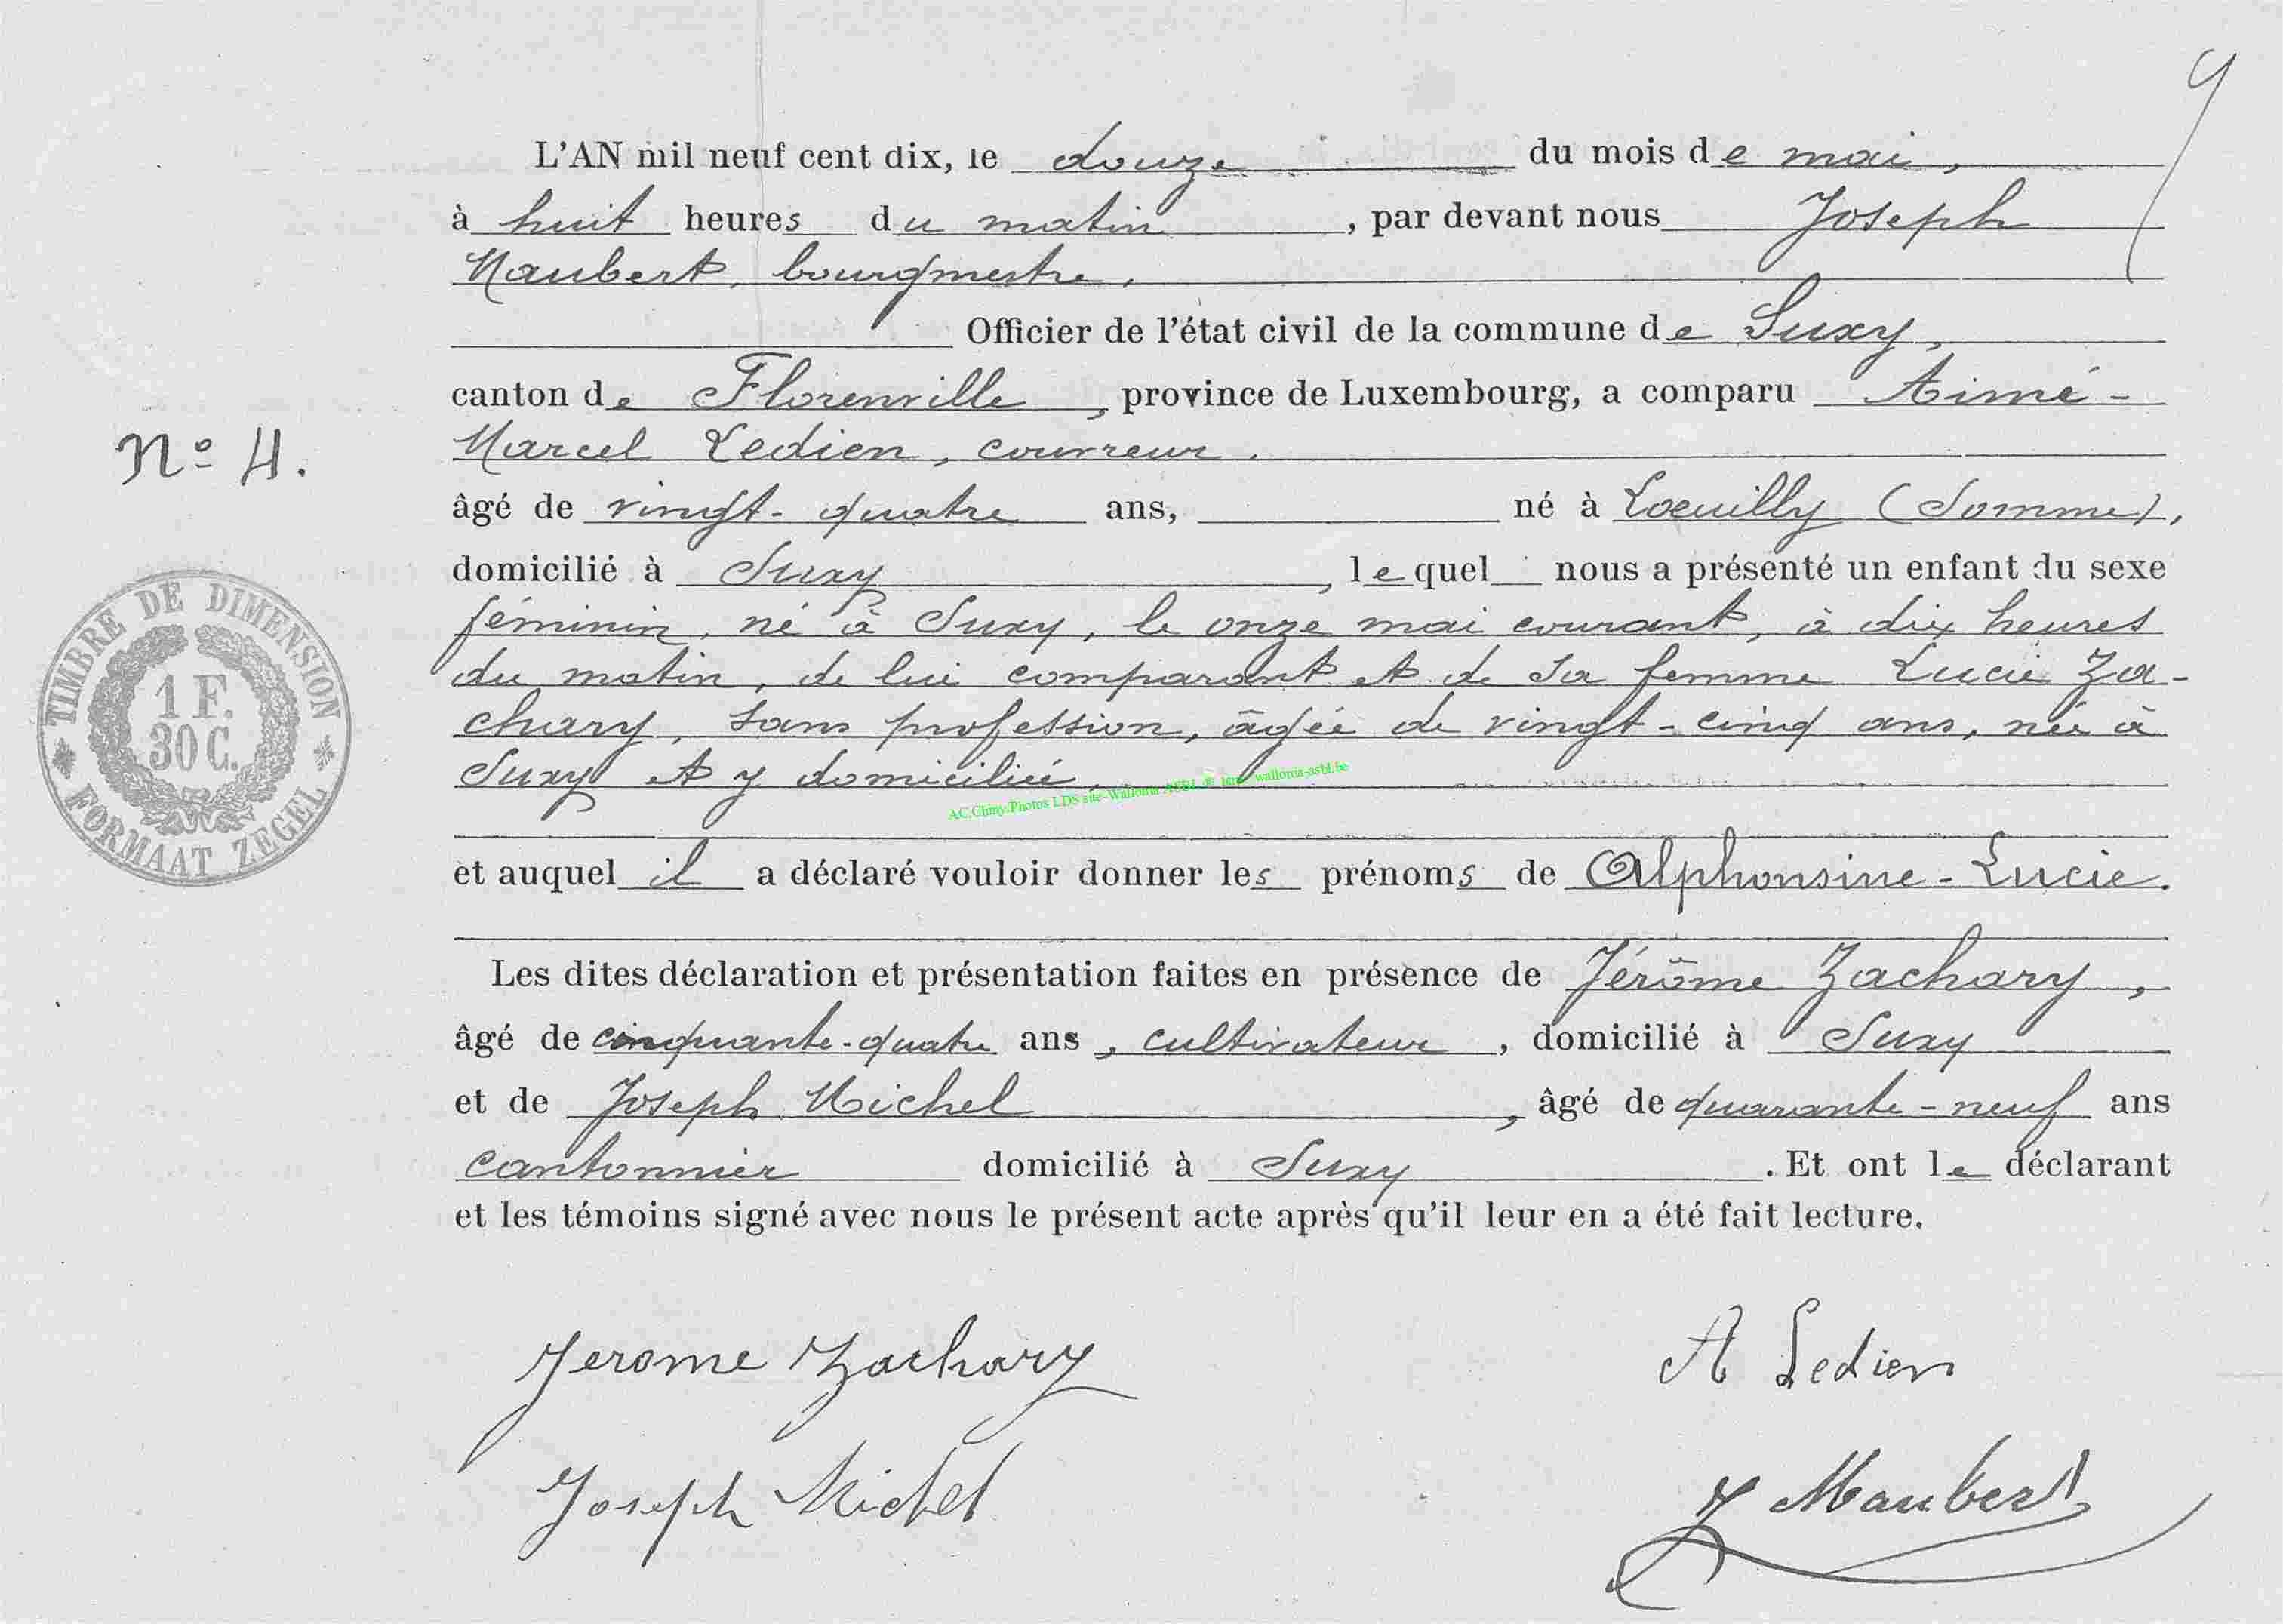 9
L'AN mil neuf cent dix, le douze du mois de mai,
à huit heures du matin, par devant nous Joseph
Maubert, bourgmestre,
Officier de l'état civil de la commune de Suxy,
canton de Florenville, province de Luxembourg, a comparu Aimé-
Marcel Ledien, couvreur.
N° 4.
âgé de vingt-quatre ans, né à Loeuilly (Somme),
domicilié à Suxy, lequel nous a présenté un enfant du sexe
féminin, né à Suxy, le onze mai courant, à dix heures
du matin, de lui comparant et de sa femme Lucie Za-
chary, sans profession, âgée de vingt-cinq ans, née à
Suxy et y domiciliée.
AC.Chiny.Photos LDS site-Wallonia ASBL wallonia-asbl.be
TIMBRE DE DIMENSION
1 F.
30 C.
FORMAAT ZEGEL
et auquel il a déclaré vouloir donner les prénoms de Alphonsine-Lucie.
Les dites déclaration et présentation faites en présence de Jérôme Zachary,
âgé de cinquante-quatre ans, cultivateur, domicilié à Suxy
et de Joseph Michel, âgé de quarante-neuf ans
cantonnier domicilié à Suxy. Et ont le déclarant
et les témoins signé avec nous le présent acte après qu'il leur en a été fait lecture.
Jerome Zachary A Ledien
Joseph Michel J Maubert